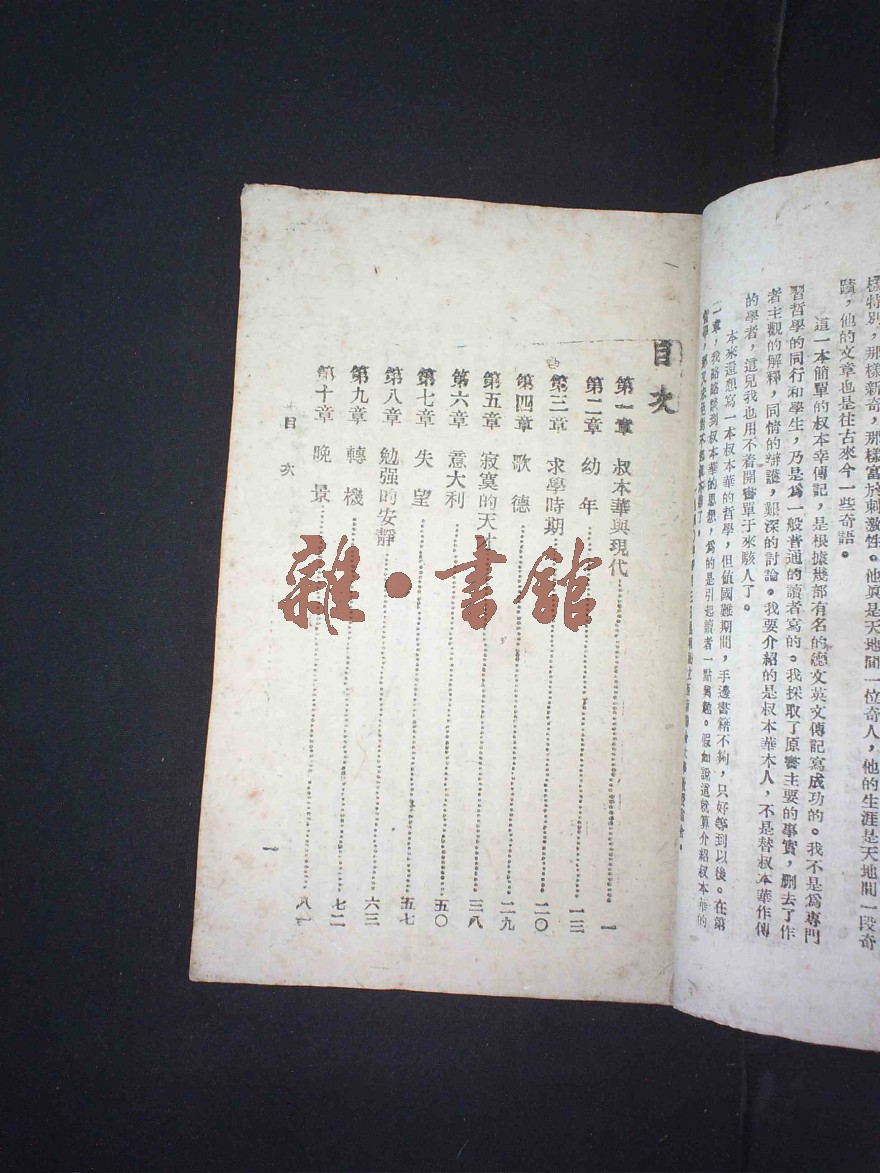 樣特別，那樣新奇，那樣富於刺激性。他眞是天地間一位奇人，他的生涯是天地間一段奇
蹟，他的文章也是往古來今一些奇語。
這一本簡單的叔本華傳記，是根據幾部有名的德文英文傳記寫成功的。我不是爲專門
習哲學的同行和學生，乃是爲一般普通的讀者寫的。我採取了原書主要的事實，删去了作
者主觀的解釋，同情的辯護，艱深的討論。我要介紹的是叔本華本人，不是替叔本華作傳
的學者，這兒我也用不着開書單子來駭人了。
本來還想寫一本叔本華的哲學，但值國難期間，手邊書籍不夠，只好等到以後。在第
二章，我略略談到叔本華的思想，爲的是引起讀者一點興趣。假如說這就算介紹叔本華的
目次
第一章 叔本華與現代 一
第二章 幼年 一三
第三章 求學時期 二〇
第四章 歌德 二九
第五章 寂寞的天才 三八
第六章 意大利 五〇
第七章 失望 五七
第八章 勉强的安靜 六三
第九章 轉機 七二
第十章 晚景 八一
目次
一
雜·書館